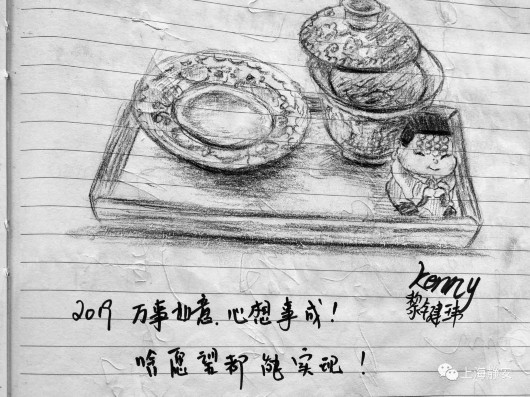 Kenny
黎健玮
2019 万事如意、心想事成！
啥愿望都能实现！
上海静安